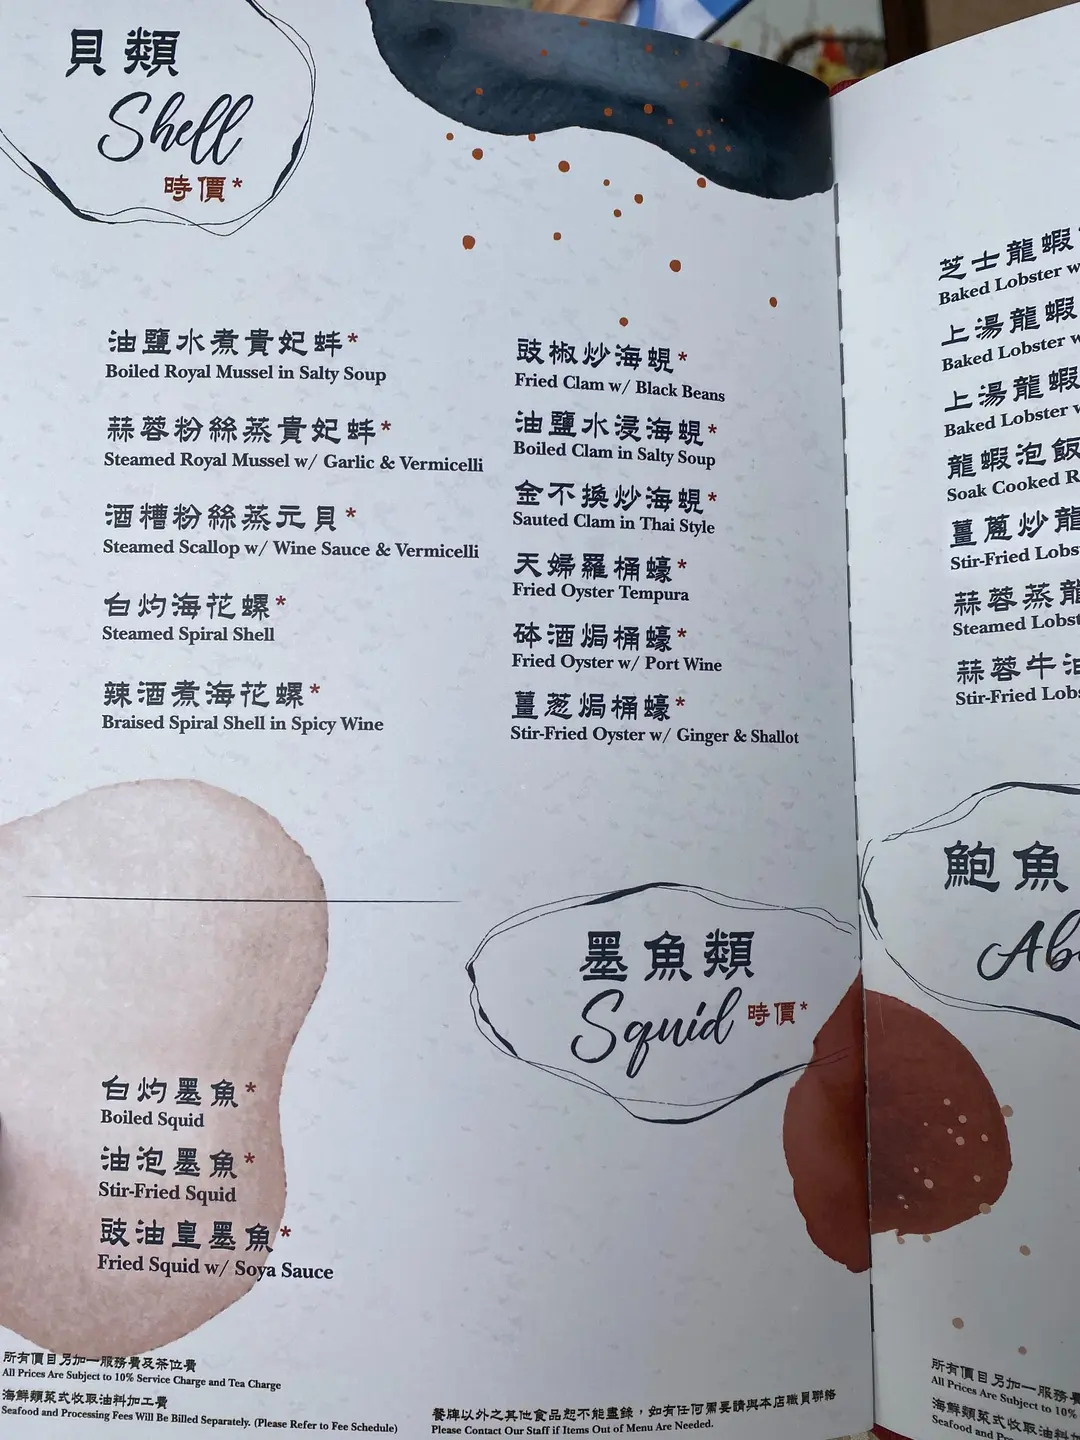 貝類
Shell
時價*
油鹽水煮貴妃蚌*
Boiled Royal Mussel in Salty Soup
蒜蓉粉絲蒸貴妃蚌*
Steamed Royal Mussel w/ Garlic & Vermicelli
酒糟粉絲蒸元貝*
Steamed Scallop w/ Wine Sauce & Vermicelli
白灼海花螺*
Steamed Spiral Shell
辣酒煮海花螺*
Braised Spiral Shell in Spicy Wine
豉椒炒海蜆*
Fried Clam w/ Black Beans
油鹽水浸海蜆*
Boiled Clam in Salty Soup
金不換炒海蜆*
Sauted Clam in Thai Style
天婦羅桶蠔*
Fried Oyster Tempura
砵酒焗桶蠔*
Fried Oyster w/ Port Wine
薑葱焗桶蠔*
Stir-Fried Oyster w/ Ginger & Shallot
墨魚類
Squid 時價*
白灼墨魚*
Boiled Squid
油泡墨魚*
Stir-Fried Squid
豉油皇墨魚*
Fried Squid w/ Soya Sauce
所有價目另加一服務費及茶位費
All Prices Are Subject to 10% Service Charge and Tea Charge
海鮮類菜式收取油料加工費
Seafood and Processing Fees Will Be Billed Separately. (Please Refer to Fee Schedule)
餐牌以外之其他食品恕不能盡錄，如有任何需要請與本店職員聯絡
Please Contact Our Staff if Items Out of Menu Are Needed.
芝士龍蝦
Baked Lobster
上湯龍蝦
Baked Lobster
上湯龍蝦
Baked Lobster
龍蝦泡飯
Soak Cooked
薑蔥炒龍
Stir-Fried
蒜蓉蒸龍
Steamed
蒜蓉牛油
Stir-Fried
鮑魚
所有價目另加一服務費
All Prices Are Subject to 10%
海鮮類菜式收取油料加
Seafood and